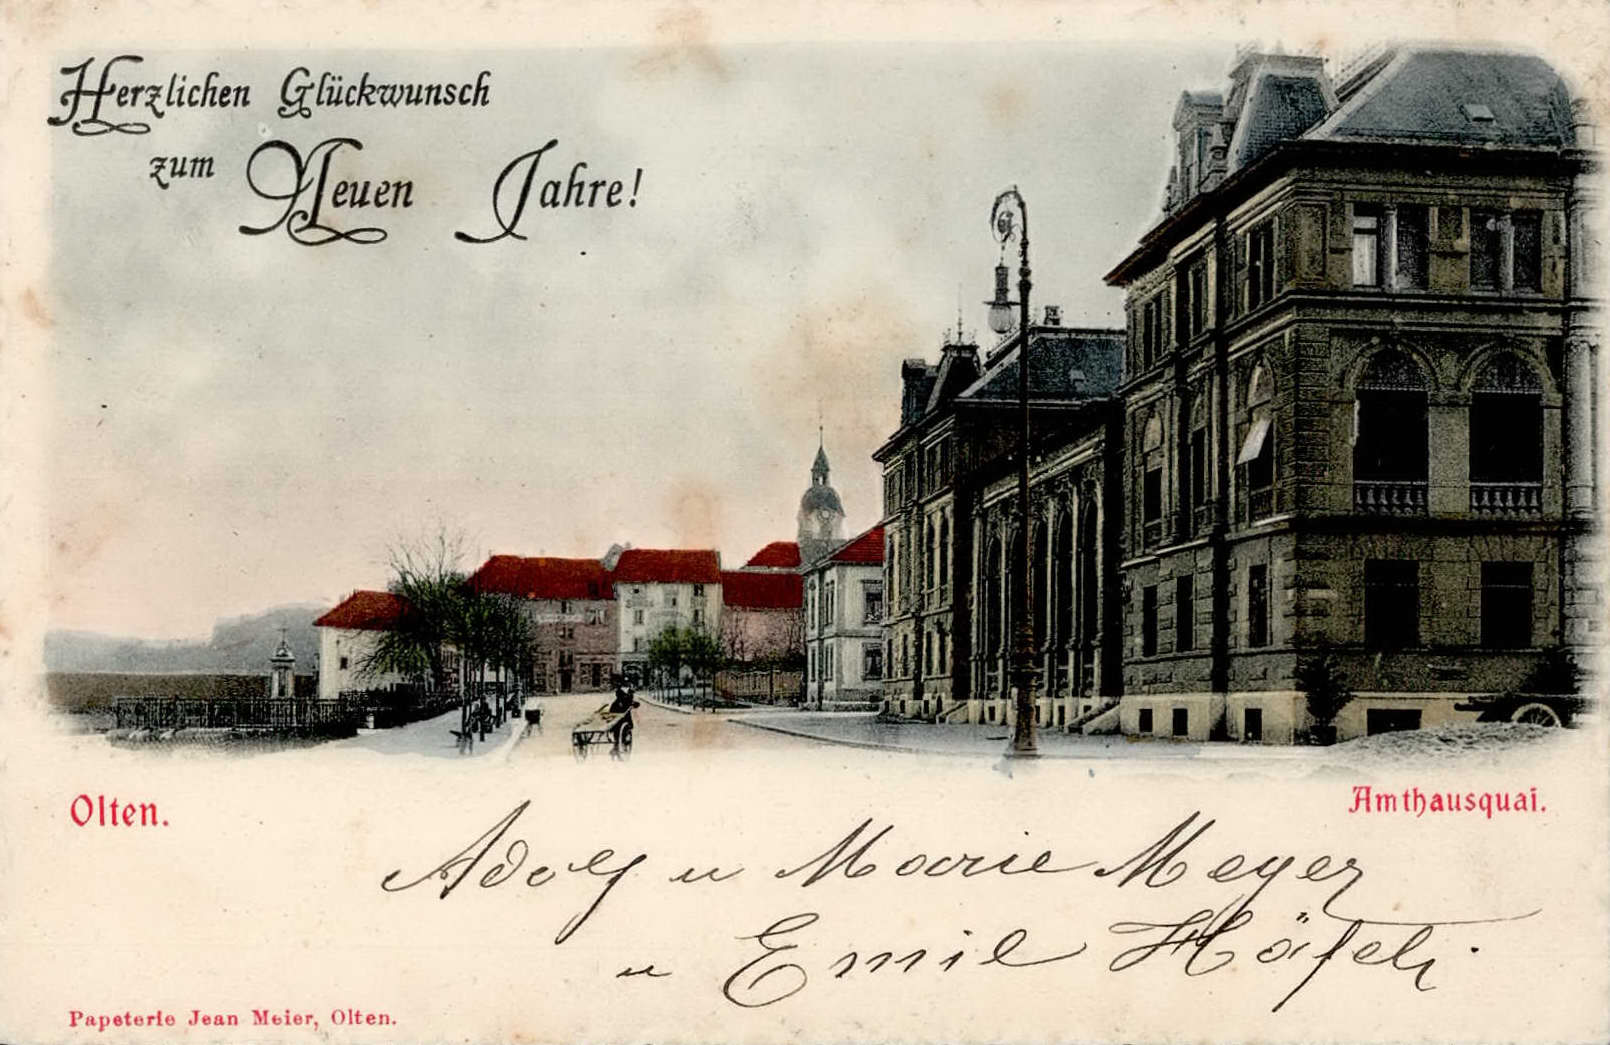 Herzlichen Glückwunsch
zum Neuen Jahre!
Olten.
Amthausquai.
Adolf u Marie Meyer
u Emil Häfeli.
Papeterie Jean Meier, Olten.